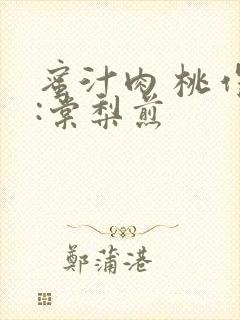 蜜汁肉桃作
:棠梨煎
鄭蒲港